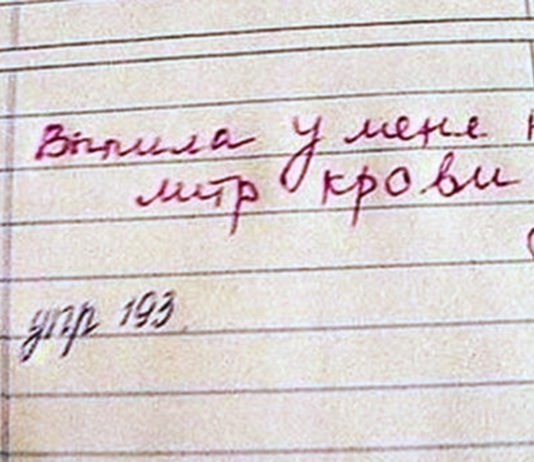 Выпила у меня
литр крови
упр 193